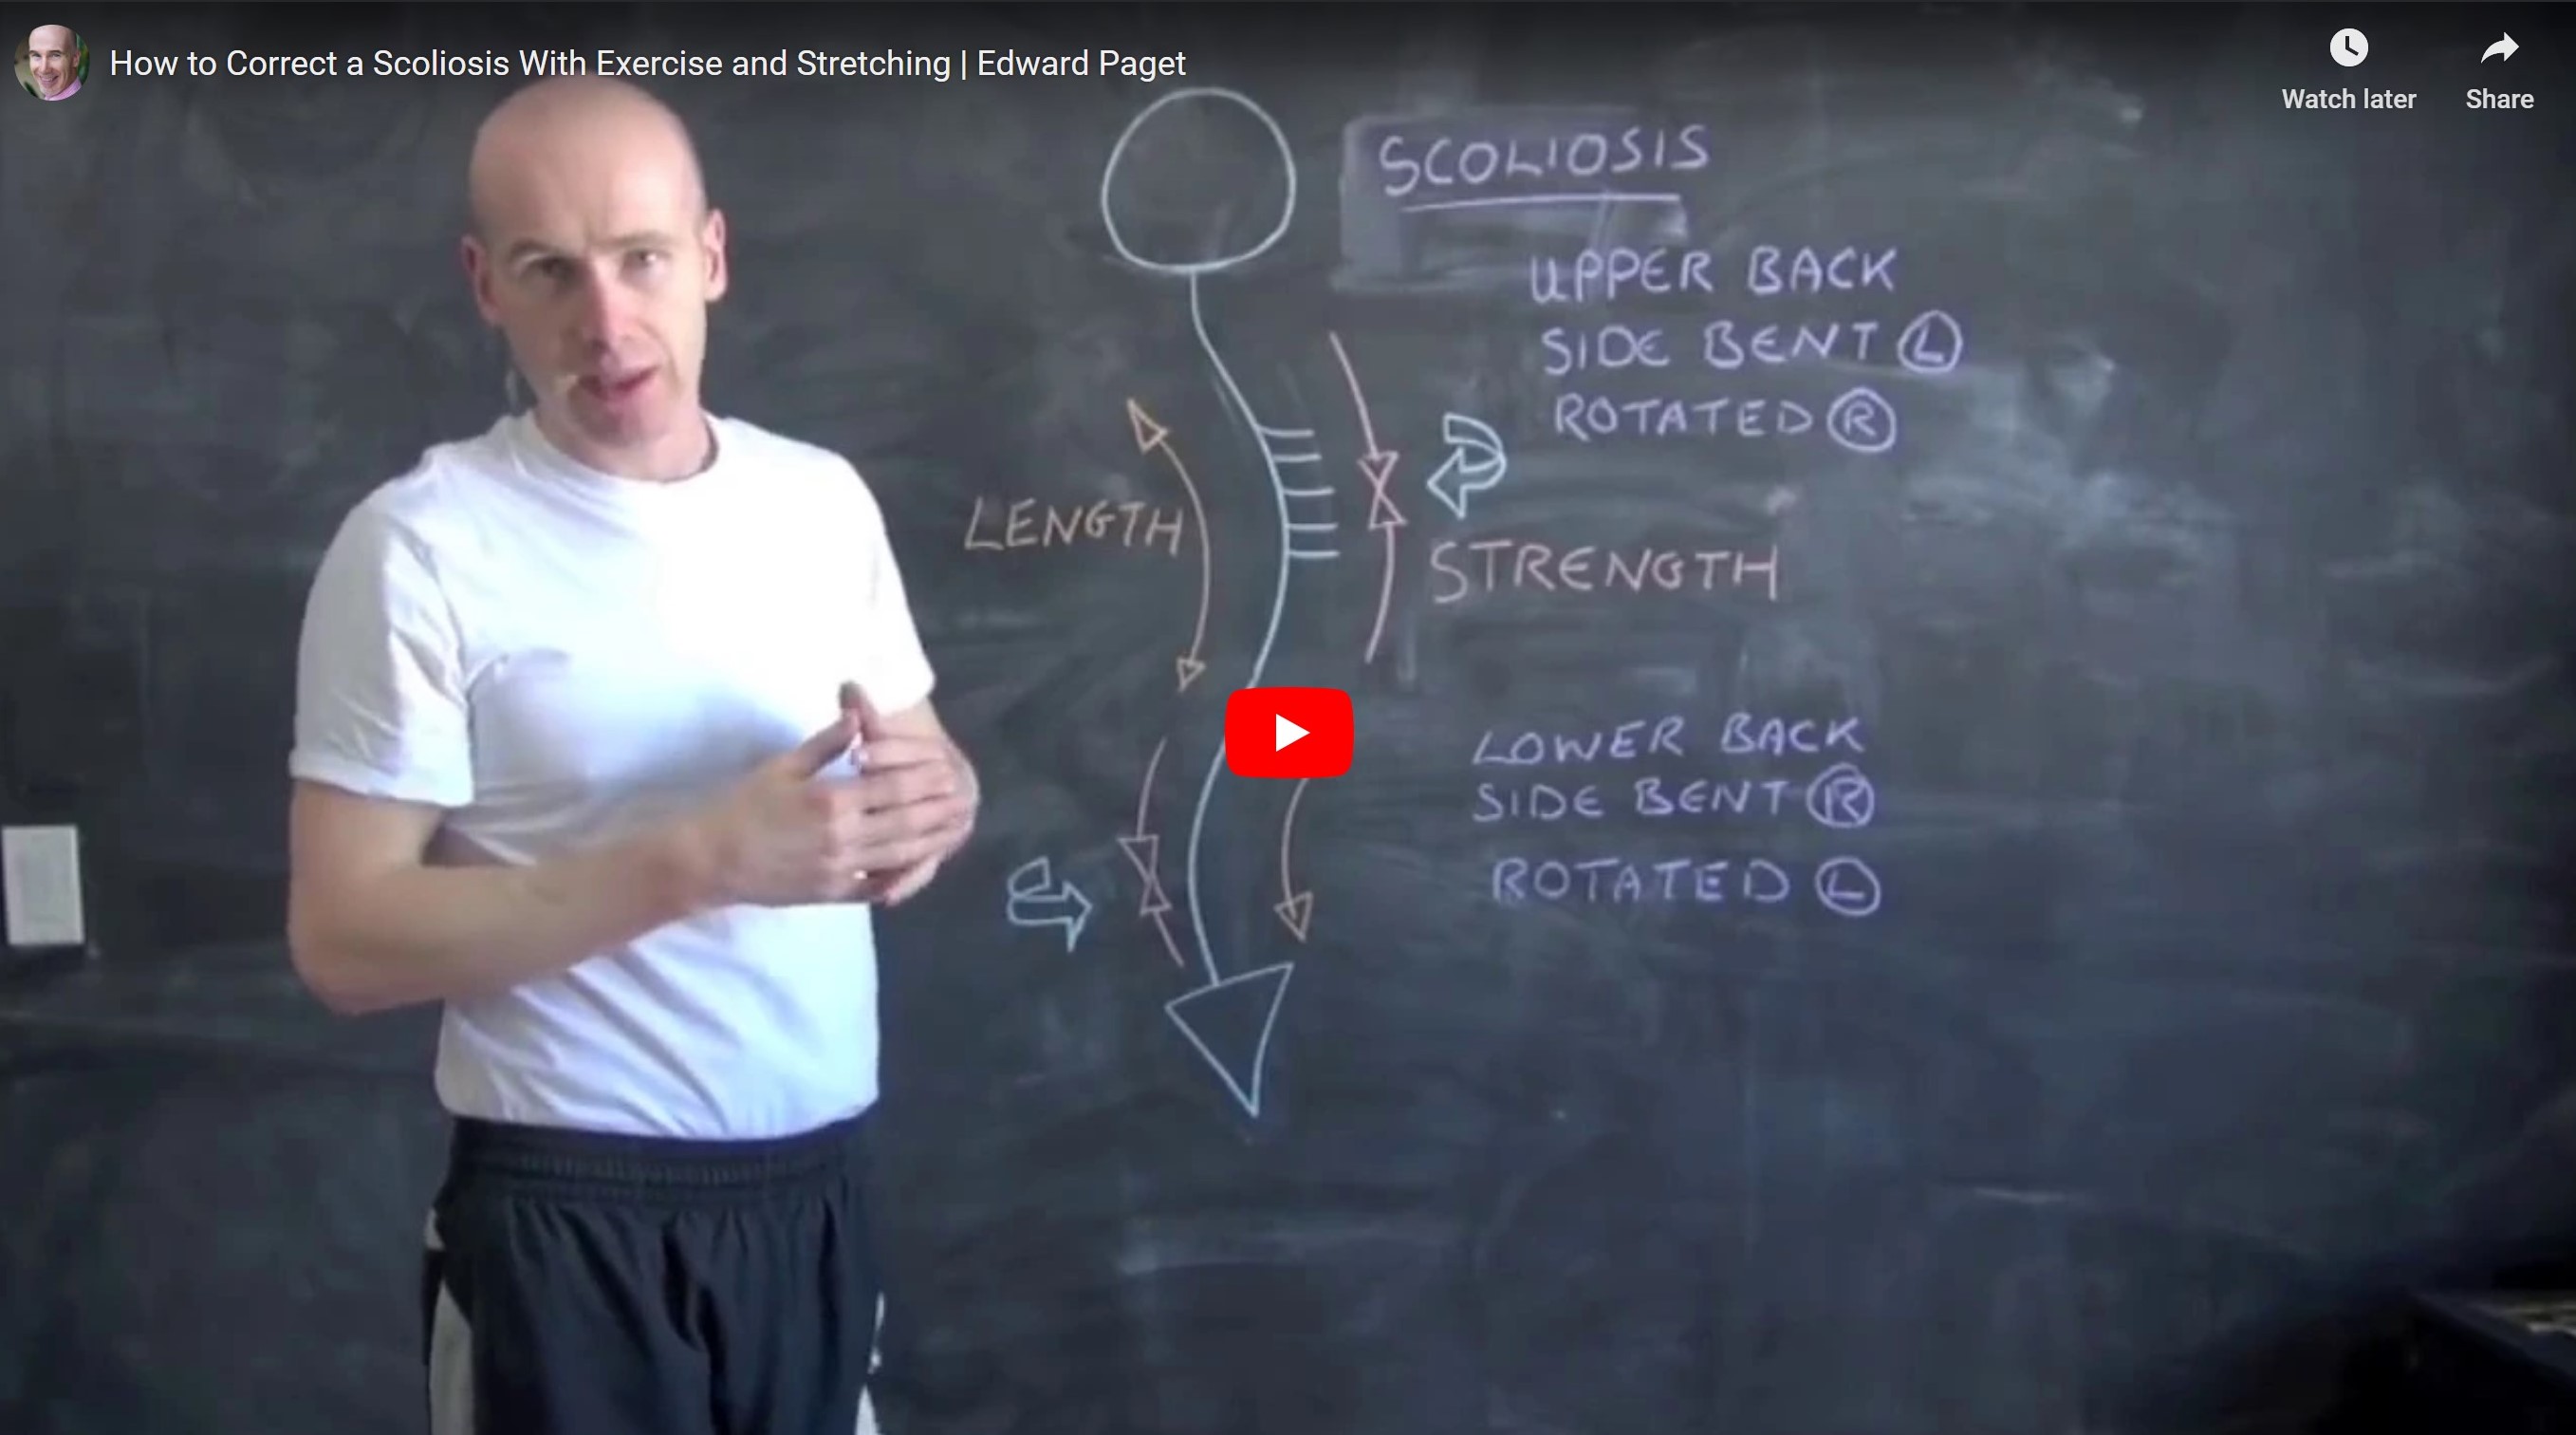 How to Correct a Scoliosis With Exercise and Stretching | Edward Paget
Watch later
Share
SCOLIOSIS
UPPER BACK
SIDE BENT L
ROTATED R
LENGTH
STRENGTH
LOWER BACK
SIDE BENT R
ROTATED L